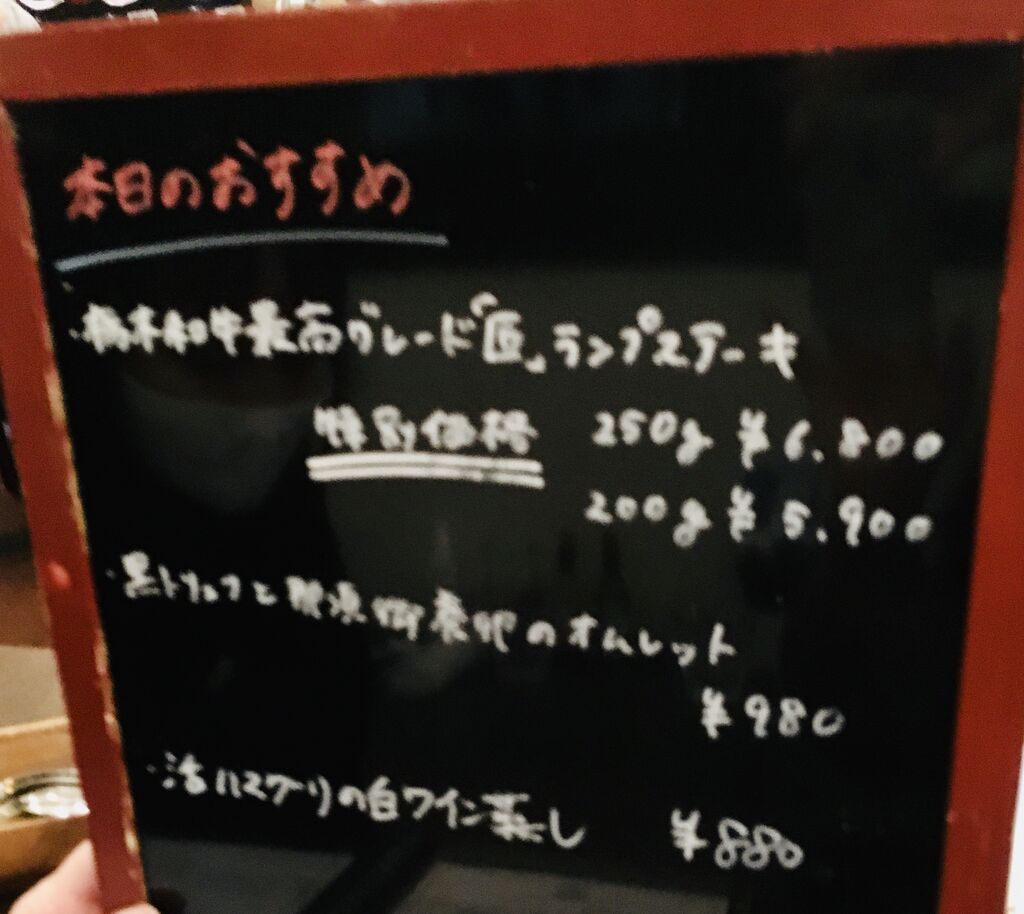 本日のおすすめ
・栃木和牛最高グレード「匠」ランプステーキ
特別価格 250g ¥6.800
200g ¥5.900
・黒トリュフと那須御養卵のオムレット
¥980
・活ハマグリの白ワイン蒸し ¥880